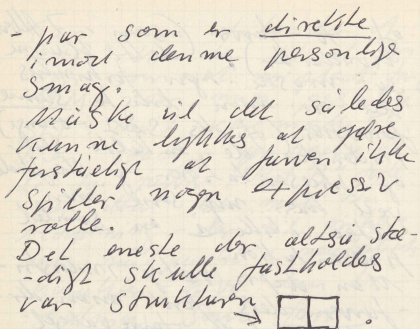 - par som er direkte
imod denne personlige
smag.
Måske vil det således
kunne lykkes at gøre
forståeligt at farven ikke
spiller nogen expressiv
rolle.
Det eneste der altså sta-
-digt skulle fastholdes
var strukturen →